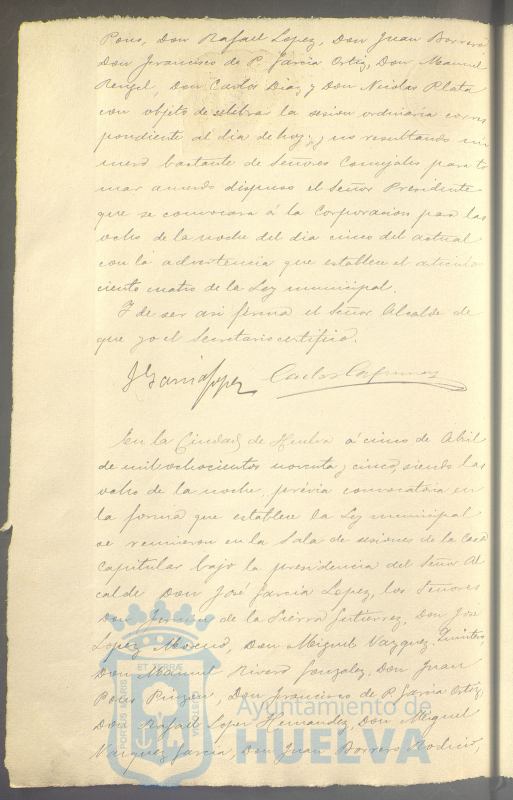 Pons, Don Rafael Lopez, Don Juan Borrero
Don Francisco de P. Garcia Ortiz, Don Manuel
Rengel, Don Carlos Diaz y Don Nicolas Plata
con objeto de celebrar la sesion ordinaria corres
pondiente al dia de hoy; y no resultando nú
mero bastante de Señores Concejales para to
mar acuerdo dispuso el Señor Presidente
que se convocara á la Corporacion para las
ocho de la noche del dia cinco del actual
con la advertencia que establece el articulo
ciento cuatro de la Ley municipal.
Y de ser asi firma el Señor Alcalde de
que yo el Secretario certifico.
J Garcia Lopez Carlos
En la Ciudad de Huelva á cinco de Abril
de mil ochocientos noventa y cinco, siendo las
ocho de la noche, prévia convocatoria en
la forma que establece la Ley municipal
se reunieron en la Sala de sesiones de la Casa
Capitular bajo la presidencia del Señor Al
calde Don José Garcia Lopez, los Señores
Don de la Sierra Gutierrez, Don José
Lopez Moreno, Don Miguel Vazquez Quintero,
Don Manuel Rivero Gonzalez, Don Juan
Pons Pinzon, Don Francisco de P. Garcia Ortiz,
Don Rafael Lopez Hernandez, Don Miguel
Vazquez Garcia, Don Juan Borrero Rodicio,
Ayuntamiento de
HUELVA
PORTUS MARIS
ET TERRÆ
CUSTODIA